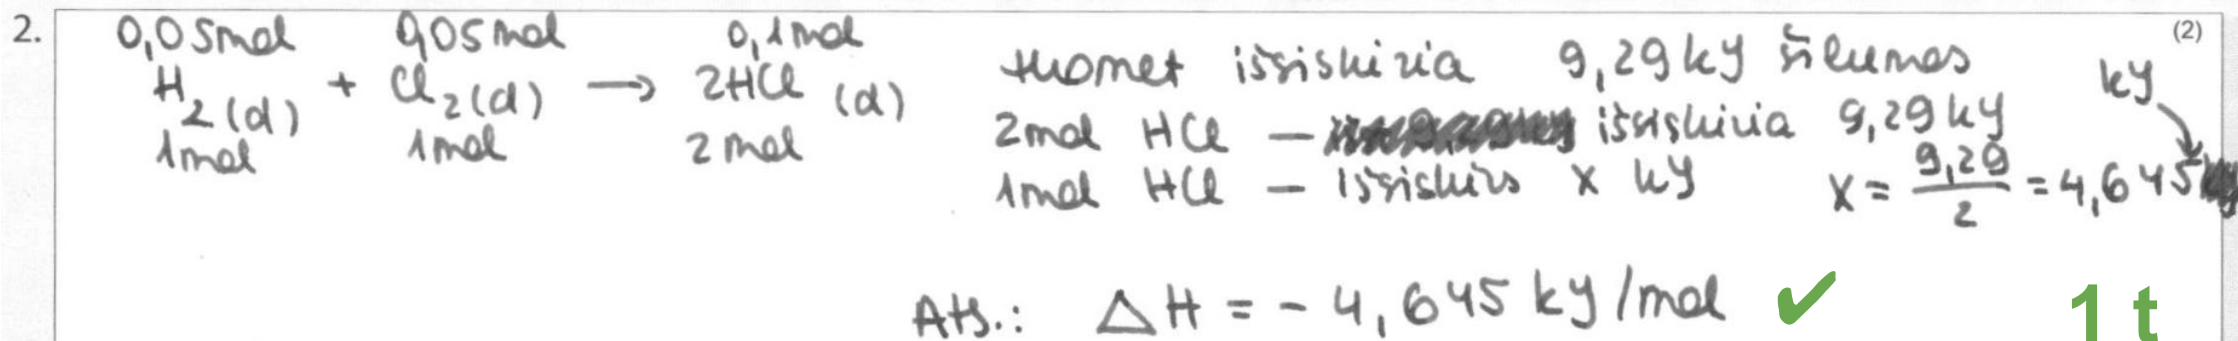 2. (2)
0,05mol 0,05mol 0,1mol
H2(d) + Cl2(d) → 2HCl (d)
1mol 1mol 2mol
tuomet išsiskiria 9,29kJ šilumos
2mol HCl — išsiskiria 9,29kJ
1mol HCl — išsiskirs x kJ
x = 9,29/2 = 4,645 kJ
Ats.: △H = - 4,645 kJ/mol ✓ 1 t